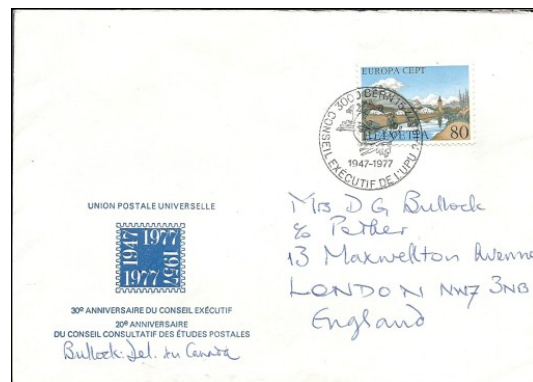 EUROPA CEPT
HELVETIA 80
3000 BERN
CONSEIL EXECUTIF DE L'UPU
1947-1977
UNION POSTALE UNIVERSELLE
1947 1977
1977 1957
30e ANNIVERSAIRE DU CONSEIL EXÉCUTIF
20e ANNIVERSAIRE
DU CONSEIL CONSULTATIF DES ÉTUDES POSTALES
Bullock: Del. du Canada
Mrs D G Bullock
c/o Pether
13 Maxwellton Avenue
LONDON NW7 3NB
England